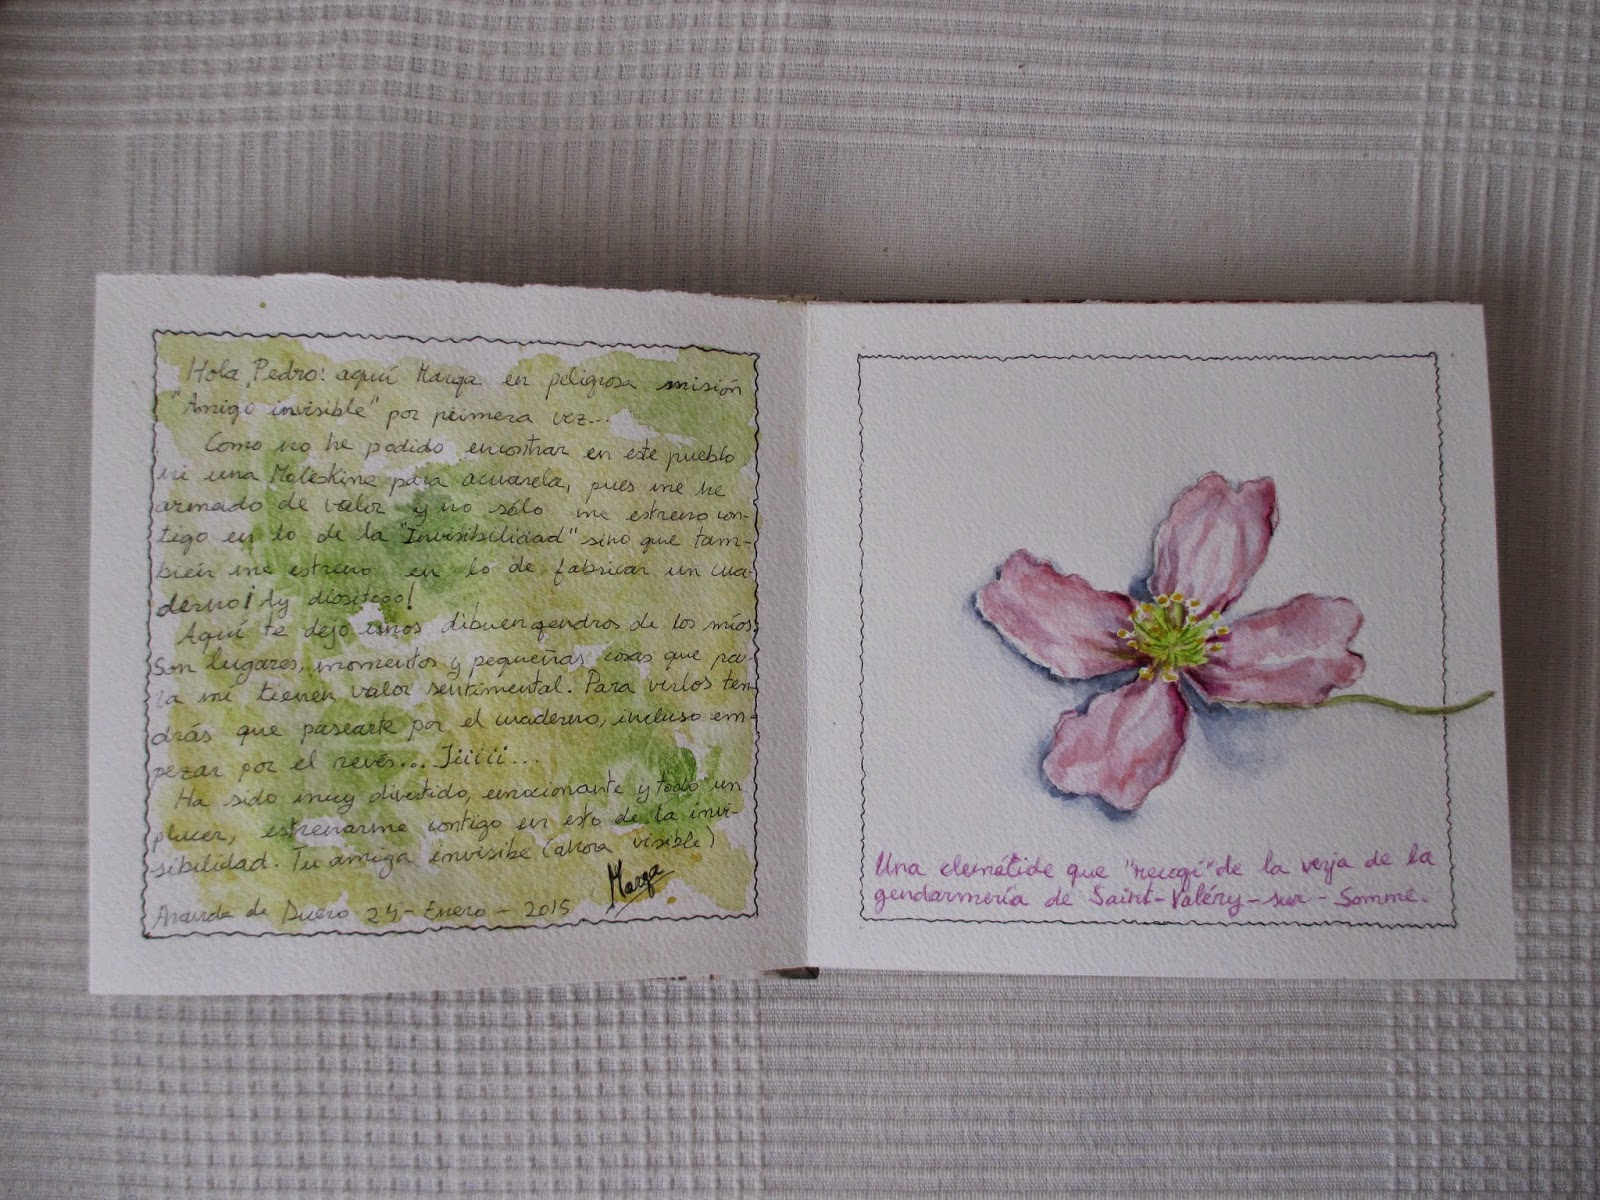 Hola, Pedro: aquí Marga en peligrosa misión
"Amigo invisible" por primera vez...
Como no he podido encontrar en este pueblo
ni una Moleskine para acuarela, pues me he
armado de valor y no sólo me estreno con-
tigo en lo de la "Invisibilidad" sino que tam-
bién me estreno en lo de fabricar un cua-
derno¡ Ay diositopo!
Aquí te dejo unos dibuengendros de los míos.
Son lugares, momentos y pequeñas cosas que pa-
ra mí tienen valor sentimental. Para verlos ten-
drás que pasearte por el cuaderno, incluso em-
pezar por el revés... Jiiiii...
Ha sido muy divertido, emocionante y todo un
placer, estrenarme contigo en esto de la invi-
sibilidad. Tu amiga invisibe (ahora visible)
Marga
Aranda de Duero 24-Enero-2015
Una clemátide que "recogí" de la verja de la
gendarmería de Saint-Valéry-sur-Somme.